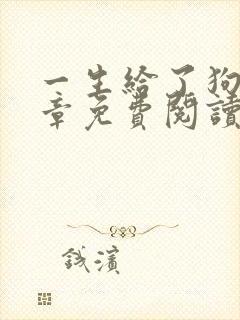 一生給了狗
章免費閱讀
錢濱